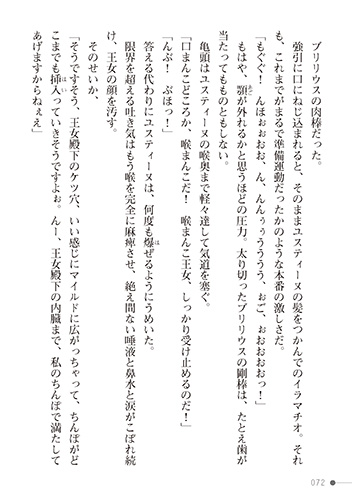 ブリリウスの肉棒だった。
強引に口にねじ込まれると、そのままユスティーヌの髪をつかんでのイラマチオ。それ
も、これまでがまるで準備運動だったかのような本番の激しさだ。
「もぐぐ！　んほぉぉぉお、ん、んんぅぅうううう、おご、ぉおおおおっ！」
もはや、顎が外れるかと思うほどの圧力。太り切ったブリリウスの剛棒は、たとえ歯が
当たってもものともしない。
亀頭はユスティーヌの喉奥まで軽々達して気道を塞ぐ。
「口まんこどころか、喉まんこだ！　喉まんこ王女、しっかり受け止めるのだ！」
「んぶ！　ぶほっ！」
答える代わりにユスティーヌは、何度も爆ぜるようにうめいた。
限界を超える吐き気はもう喉を完全に麻痺させ、絶え間ない唾液と鼻水と涙がこぼれ続
け、王女の顔を汚す。
そのせいか、
「そうですそう、王女殿下のケツ穴、いい感じにマイルドに広がっちゃって、ちんぽがど
こまでも挿入っていきそうですよぉ。んー、王女殿下の内臓まで、私のちんぽで満たして
あげますからねぇえ」
072